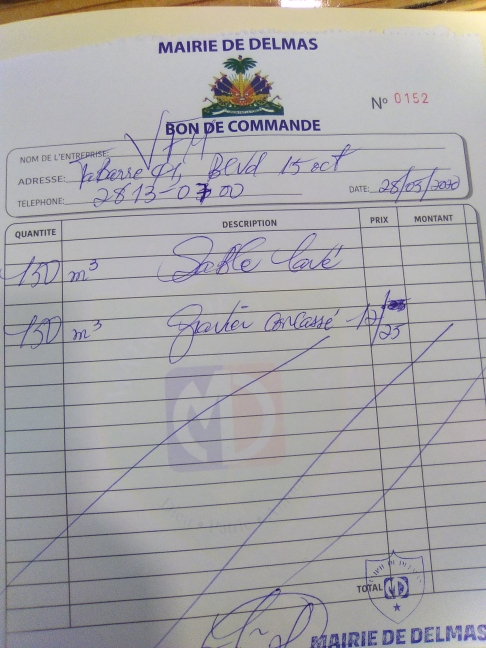 MAIRIE DE DELMAS
N° 0152
BON DE COMMANDE
NOM DE L'ENTREPRISE:
ADRESSE: Tabarre 41, Blvd 15 oct
TELEPHONE: 2813-0700 DATE: 28/05/2020
QUANTITE DESCRIPTION PRIX MONTANT
150 m³ Sable lavé
150 m³ Gravier concassé 12/25
TOTAL MD
MAIRIE DE DELMAS